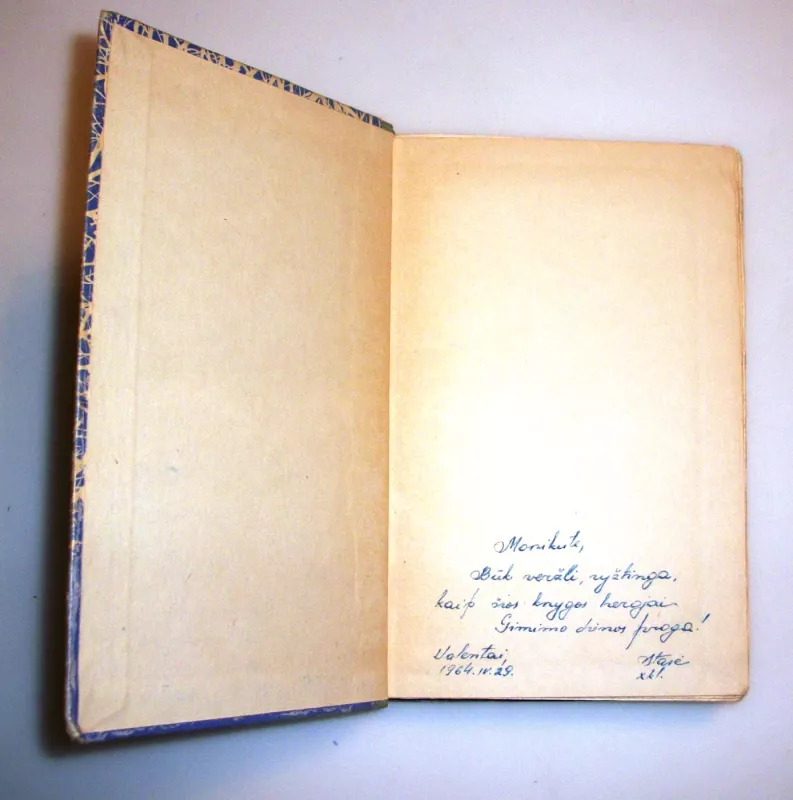 Monikut,
Būk veržli, ryžtinga,
kaip šios knygos herojai
Gimimo dienos proga!
Valentai, Stasė
1964.IV.29.